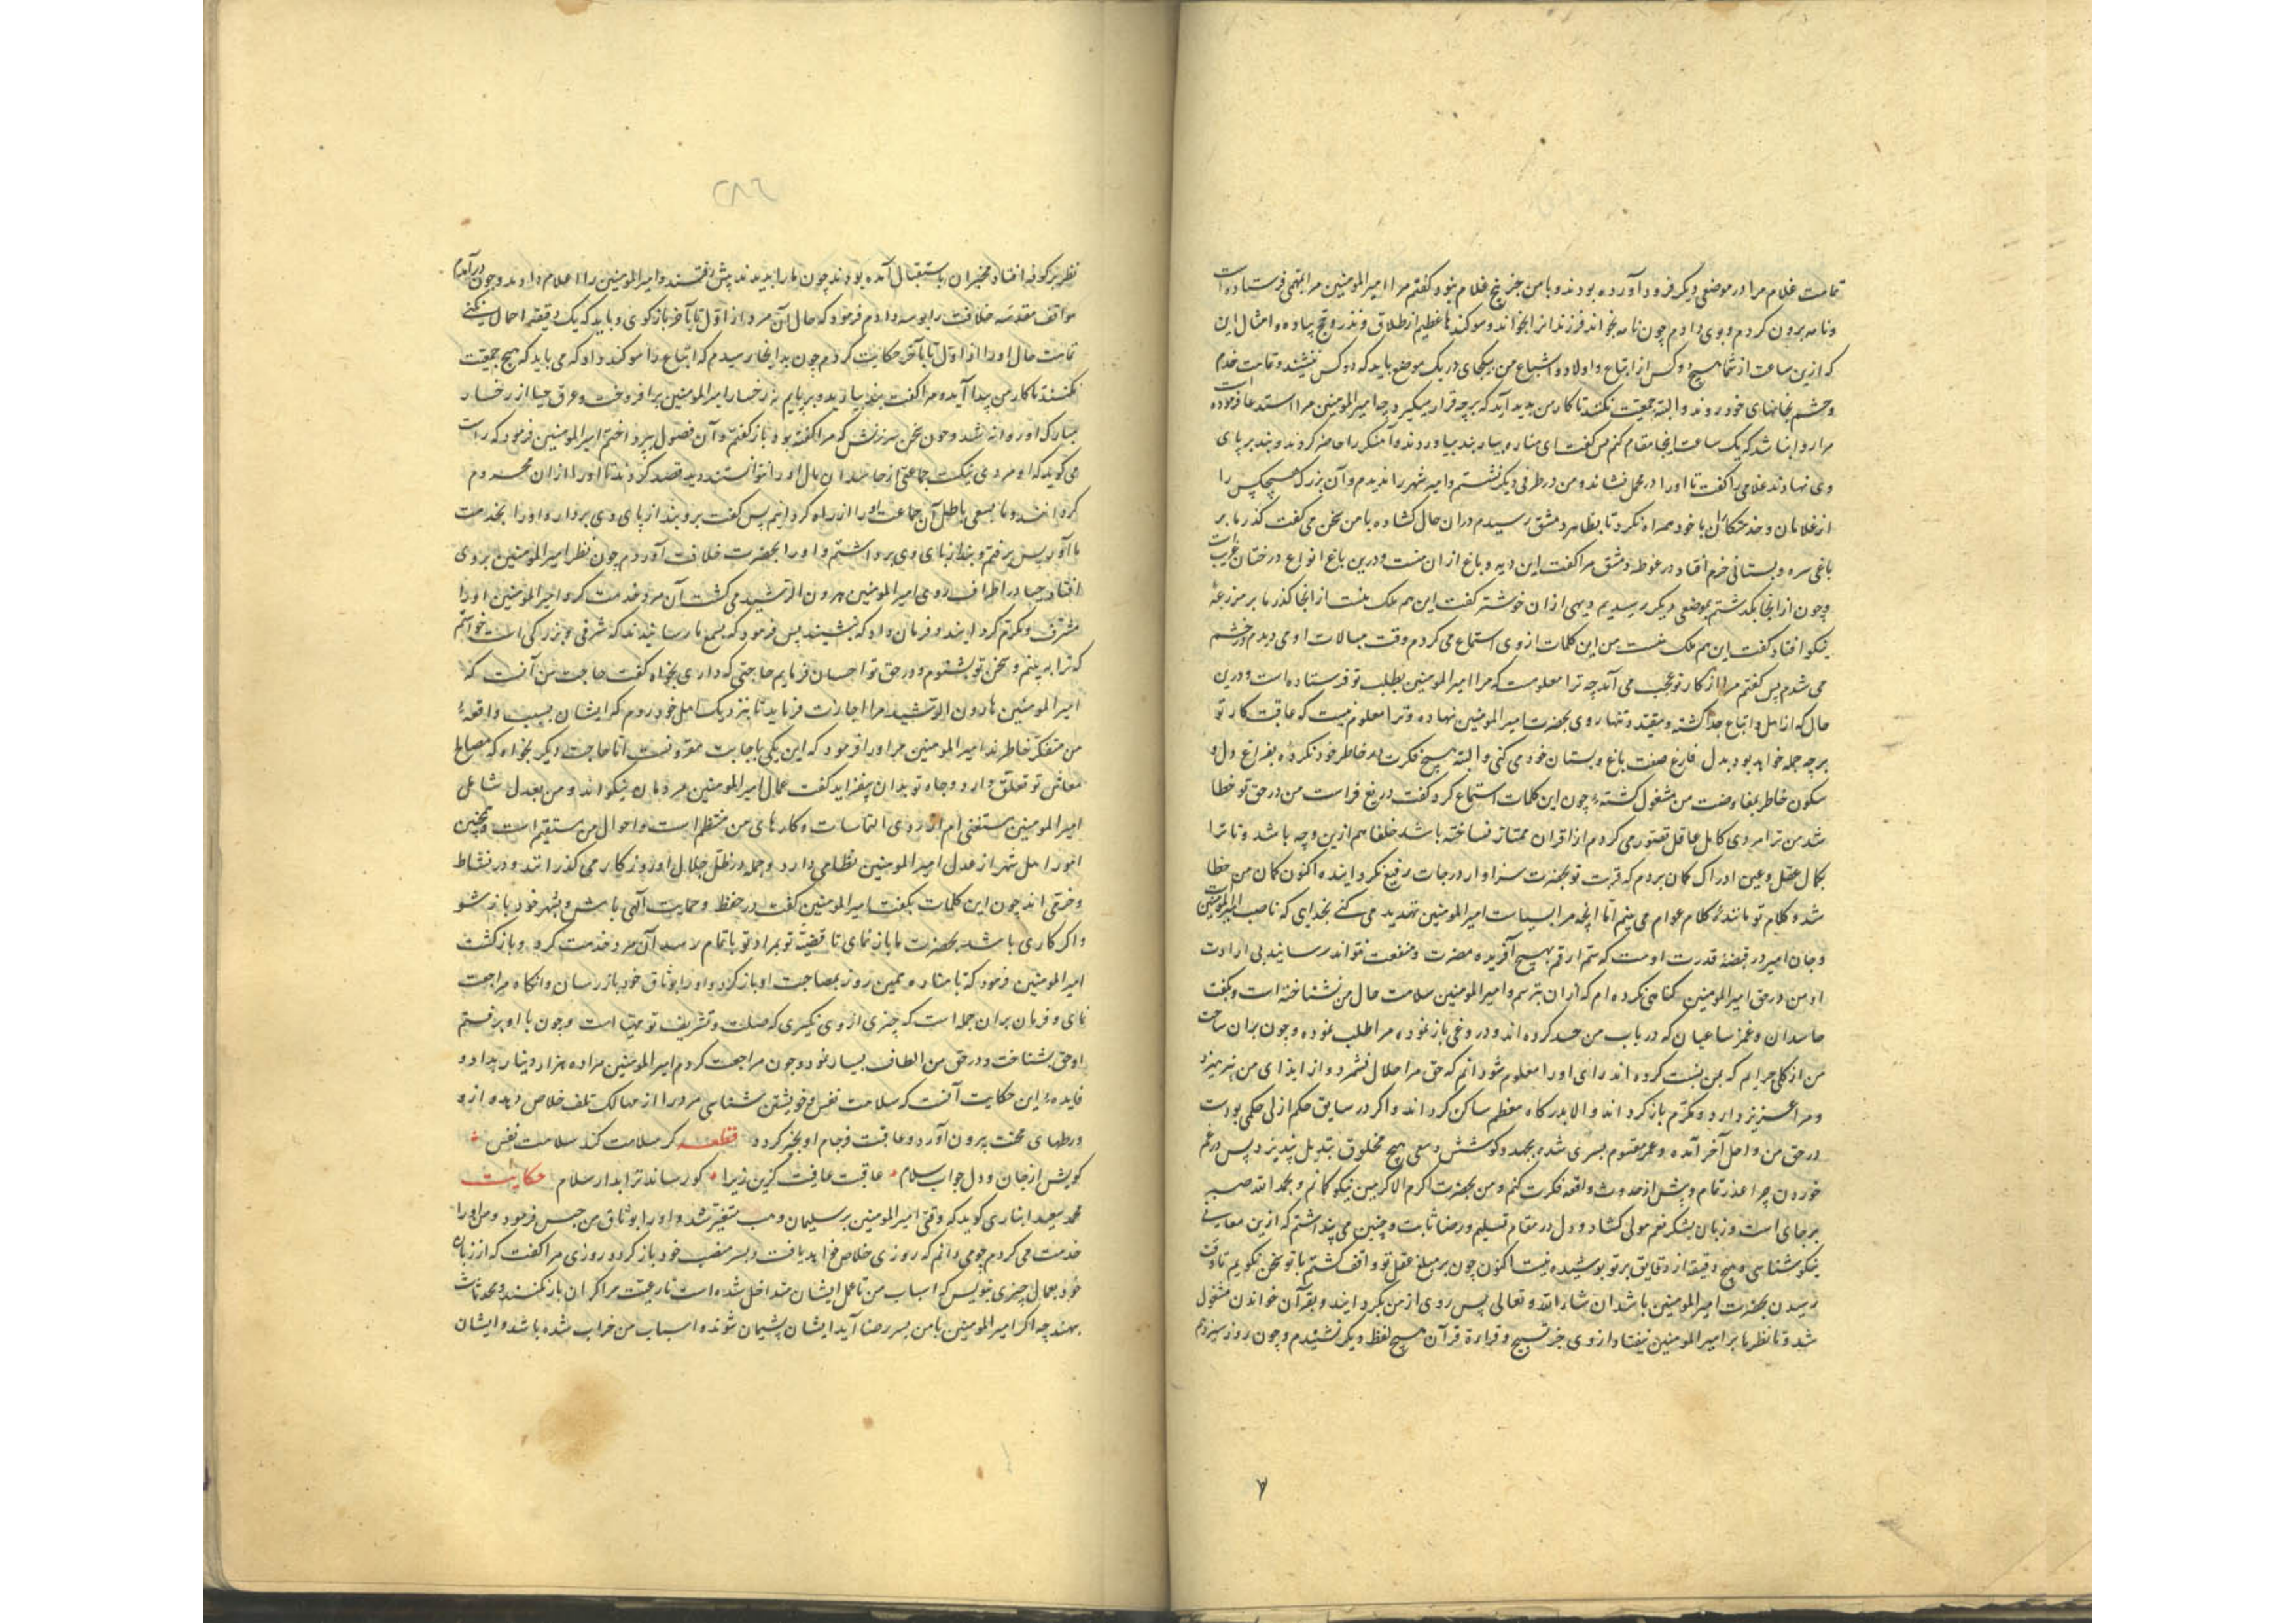 تمامت غلام مرا در موضعی دیگر فرود آورده بودند و با من جز پنج غلام نبود گفتم مرا امیرالمؤمنین مرا بمهمی فرستاده است
و نامه برون کردم و بوی دادم چون نامه بخواند فرزندانرا بخواند و سوکندها عظیم از طلاق و نذر و حج پیاده و امثال این
که ازین ساعت از شما هیچ دو کس از اتباع و اولاد و اشیاع من بیکجای در یک موضع باید که دو کس ننشیند و تمامت خدم
و حشم بخانهای خود روند و البته جمعیت نکنند تا کار من پدید آید که برچه قرار میگیرد چه امیرالمؤمنین مرا استدعا فرموده است
مرا روا نباشد که یک ساعت اینجا مقام کنم پس گفت ای مناره بیار بند بیاوردند و آهنگر را حاضر کردند و بند بر پای
وی نهادند غلامی را گفت تا او را در محمل نشاند و من در طرفی دیگر نشستم و امیر شهر را ندیدم و آن بزرگ هیچکس را
از غلامان و خدمتکاران با خود همراه نکرد تا بظاهر دمشق رسیدم دران حال گشاده با من سخن می گفت گذر ما بر
باغی سره و بستانی خرم افتاد در غوطه دمشق مرا گفت این دیه و باغ از ان منست و درین باغ انواع درختان غریب است
و چون از انجا بگذشتم بموضعی دیگر رسیدیم دیهی از ان خوشتر گفت این هم ملک منست از انجا گذر ما بر مزرعهٔ
نیکو افتاد گفت این هم ملک منست من این کلمات از وی استماع می کردم وقت مبالات او می دیدم در خشم
می شدم پس گفتم مرا از کار تو عجب می آید چه ترا معلومست که مرا امیرالمؤمنین بطلب تو فرستاده است و درین
حال که از اهل و اتباع جدا گشته و مقید و تنها روی بحضرت امیرالمؤمنین نهاده و ترا معلوم نیست که عاقبت کار تو
بر چه جمله خواهد بود بدل فارغ صفت باغ و بستان خود می کنی و البته هیچ فکرت در خاطر خود نکرده بفراغ دل و
سکون خاطر بمفاوضت من مشغول گشتهٔ چون این کلمات استماع کرد گفت دریغ فراست من در حق تو خطا
شد من ترا مردی کامل عاقل تصور می کردم از اقران ممتاز نساخته باشد خلفا هم ازین وجه باشد و تا ترا
بکمال عقل و عین ادراک گمان بردم که قربت تو بحضرت سزاوار درجات رفیع نگردانیده اکنون گمان من خطا
شد و کلام تو مانند کلام عوام می بینم اما انچه مرا بسیاست امیرالمؤمنین تهدید می کنی بخدای که ناصیه امیرالمؤمنین
و جان امیر در قبضهٔ قدرت اوست که ستم ارقم بهیچ آفریده مضرت و منفعت نتواند رسانید بی ارادت
او من در حق امیرالمؤمنین گناهی نکرده ام که ازان بترسم و امیرالمؤمنین سلامت حال من نشناخته است و بگفت
حاسدان و غمز ساعیان که در باب من حسد کرده اند و دروغی باز نموده مرا طلب نموده و چون بران ساحت
من از کلی جرایم که بمن نسبت کرده اند رای او را معلوم شود دانم که حق مرا حلال نشمرد و از ایذای من بپرهیزد
و مرا عزیز دارد و مکرم باز گرداند و الا بدرگاه معظم ساکن گرداند و اگر در سابق حکم ازلی حکمی بودست
در حق من و اجل آخر آمده و عمر مقسوم بسری شده بجهد و کوشش و سعی هیچ مخلوق تبدیل نپذیرد پس در غم
خوردن چرا عذر تمام و پیش از حدوث واقعه فکرت کنم و من بحضرت اکرم الاکرمین نیکو گمانم و بحمد الله صبر
بر جای است و زبان بشکر نعم مولی گشاد و دل در مقام تسلیم و رضا ثابت و چنین می پنداشتم که ازین معارنی
نیکو شناسی و هیچ دقیقه از دقایق بر تو پوشیده نیست اکنون چون بر مبلغ عقل تو واقف گشتم با تو سخن نگویم تا وقت
رسیدن بحضرت امیرالمؤمنین باشد ان شاء الله و تعالی پس روی از من بگردانید و بقرآن خواندن مشغول
شد و تا نظر ما بر امیرالمؤمنین نیفتاد از وی جز تسبیح و قراءة قرآن هیچ لفظ دیگر نشنیدم و چون روز سیزدهم
نظر بر کوفه افتاد مخبران باستقبال آمده بودند چون ما را بدیدند پیش رفتند و امیرالمؤمنین را اعلام دادند و چون درآمدم
مواقف مقدسه خلافت را بوسه دادم فرمود که حال آن مرد از اول تا بآخر باز گوی و باید که یک دقیقه اهمال نکنی
تمامت حال او را از اول تا بآخر حکایت کردم چون بدانجا رسیدم که اتباع را سوکند داد که می باید که هیچ جمعیت
نکنند تا کار من پیدا آید و مرا گفت بند بیارید و بر پایم نه رخسار امیرالمؤمنین برافروخت و عرق حیا از رخسار
مبارک او روانه شد و چون سخن سرزنش که مرا گفته بود باز گفتم و آن فصول بپرداختم امیرالمؤمنین فرمود که راست
می گوید که او مردی نیکست جماعتی از حاسدان مال او را نتوانستند دید قصد کردند تا او را ازان محروم
گردانند و ما بسعی باطل آن جماعت او را از راه گردانیم پس گفت برو بند از پای وی بردار و او را بخدمت
ما آور پس برفتم و بند از پای وی برداشتم و او را بحضرت خلافت آوردم چون نظر امیرالمؤمنین بروی
افتاد حیا در اطراف روی امیرالمؤمنین هرون الرشید می گشت آن مرد خدمت کرد و امیرالمؤمنین او را
مشرف و مکرم گردانید و فرمان داد که بنشیند پس فرمود که بسمع ما رسانیدند که شرفی و بزرگی است خواستم
که ترا ببینم و سخن تو بشنوم و در حق تو احسان فرمایم حاجتی که داری بخواه گفت حاجت من آنست که
امیرالمؤمنین هارون الرشید مرا اجازت فرماید تا بنزدیک اهل خود روم که ایشان بسبب واقعهٔ
من متفکر خاطرند امیرالمؤمنین مر او را فرمود که این یکی باجابت مقرونست اما حاجت دیگر بخواه که مصالح
معاش تو تعلق دارد و جاه تو بدان بیفزاید گفت عمال امیرالمؤمنین مردمان نیکو اند و من بعدل شامل
امیرالمؤمنین مستغنی ام از روی التماسات و کارهای من منتظم است و احوال من مستقیم است و همچنین
امور اهل شهر از عدل امیرالمؤمنین نظامی دارد و جمله در ظل جلال او روزگار می گذرانند و در نشاط
و خرمی اند چون این کلمات بگفت امیرالمؤمنین گفت در حفظ و حمایت الهی باش و بشهر خود باز شو
و اگر کاری باشد بحضرت ما باز نمای تا قضیت تو بمراد تو باتمام رسد آن مرد خدمت کرد و باز گشت
امیرالمؤمنین فرمود که تا مناره همین روز بمصاحبت او باز گردد و او را بوثاق خود باز رسان و انگاه مراجعت
نمای و فرمان بران جمله است که چیزی از وی نگیری که صلت و تشریف تو مهیا است و چون با او برفتم
او حق بشناخت و در حق من الطاف بسیار نمود و چون مراجعت کردم امیرالمؤمنین مرا ده هزار دینار بداد و
فایدهٔ این حکایت آنست که سلامت نفس و خویشتن شناسی مرد را از مهالک تلف خلاص دهد و از و
ورطهای محنت بیرون آورد و عاقبت و فرجام او بخیر گردد قطعه گر سلامت کند سلامت نفس
گویش از جان و دل جواب سلام عاقبت عافیت گزین زیرا کو رساند ترا بدار سلام حکایت
محمد سعید انباری گوید که وقتی امیرالمؤمنین بر سلیمان وهب متغیر شد و او را بوثاق من حبس فرمود و من او را
خدمت می کردم چو می دانم که روزی خلاص خواهد یافت و بسر منصب خود باز گردد روزی مرا گفت که از زبان
خود بعمال چیزی بنویس که اسباب من تا عمل ایشان متداخل شده است تا رعیت مرا گران بار نکنند و محدثات
بنهند چه اگر امیرالمؤمنین با من بسر رضا آید ایشان پشیمان شوند و اسباب من خراب شده باشد و ایشان